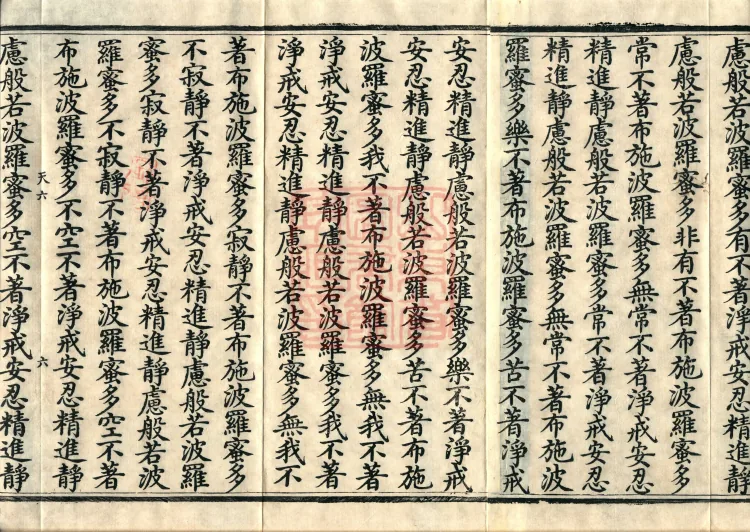 慮般若波羅蜜多有不著淨戒安忍精進靜
慮般若波羅蜜多非有不著布施波羅蜜多
常不著布施波羅蜜多無常不著淨戒安忍
精進靜慮般若波羅蜜多常不著淨戒安忍
精進靜慮般若波羅蜜多無常不著布施波
羅蜜多樂不著布施波羅蜜多苦不著淨戒
安忍精進靜慮般若波羅蜜多樂不著淨戒
安忍精進靜慮般若波羅蜜多苦不著布施
波羅蜜多我不著布施波羅蜜多無我不著
淨戒安忍精進靜慮般若波羅蜜多我不著
淨戒安忍精進靜慮般若波羅蜜多無我不
著布施波羅蜜多寂靜不著布施波羅蜜多
不寂靜不著淨戒安忍精進靜慮般若波羅
蜜多寂靜不著淨戒安忍精進靜慮般若波
羅蜜多不寂靜不著布施波羅蜜多空不著
布施波羅蜜多不空不著淨戒安忍精進靜
天六 六
慮般若波羅蜜多空不著淨戒安忍精進靜